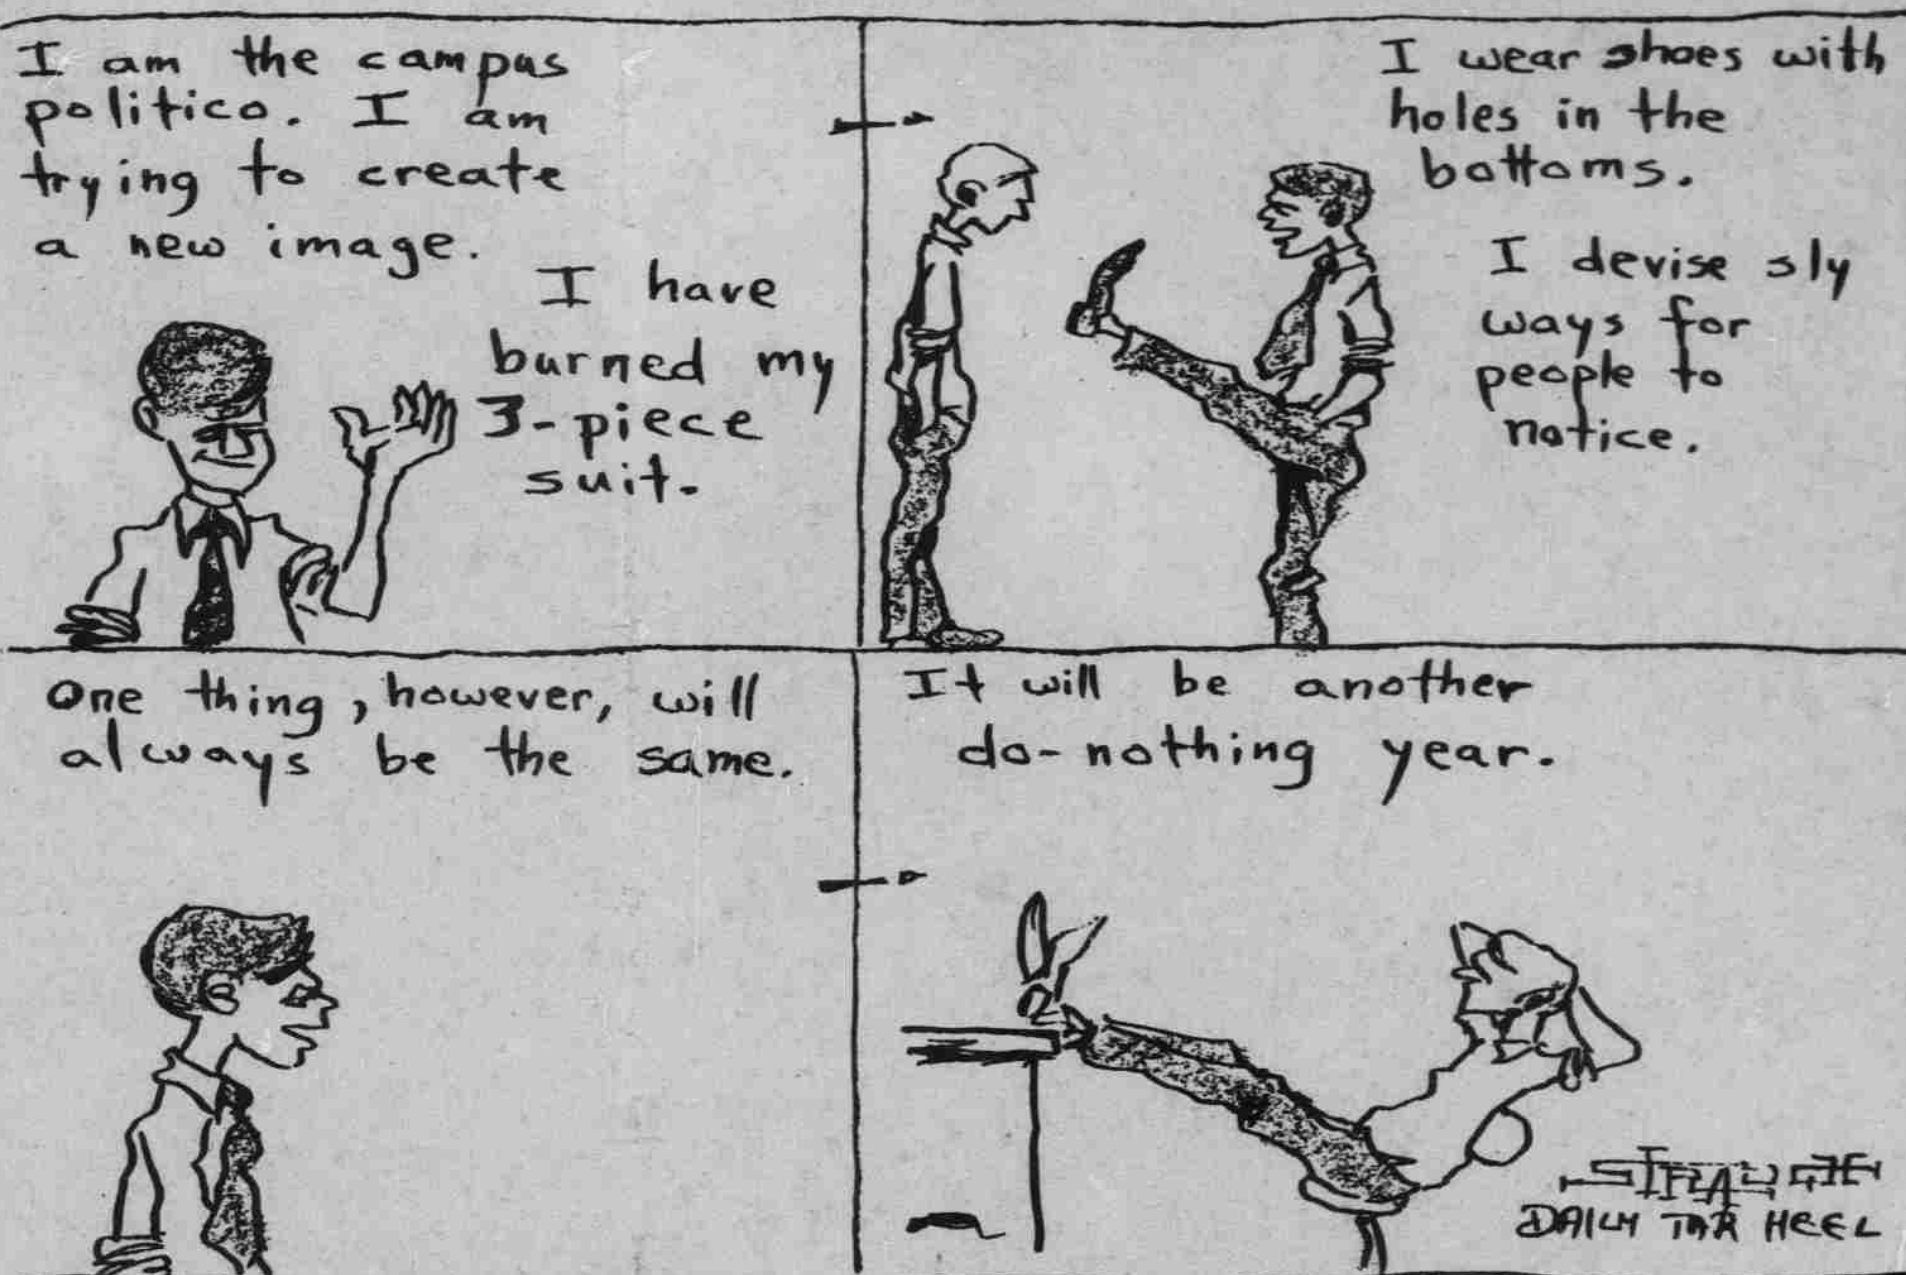 I am the campus
politico. I am
trying to create
a new image.
I have
burned my
3-piece
suit.
I wear shoes with
holes in the
bottoms.
I devise sly
ways for
people to
notice.
One thing, however, will
always be the same.
It will be another
do-nothing year.
DAILY TAR HEEL